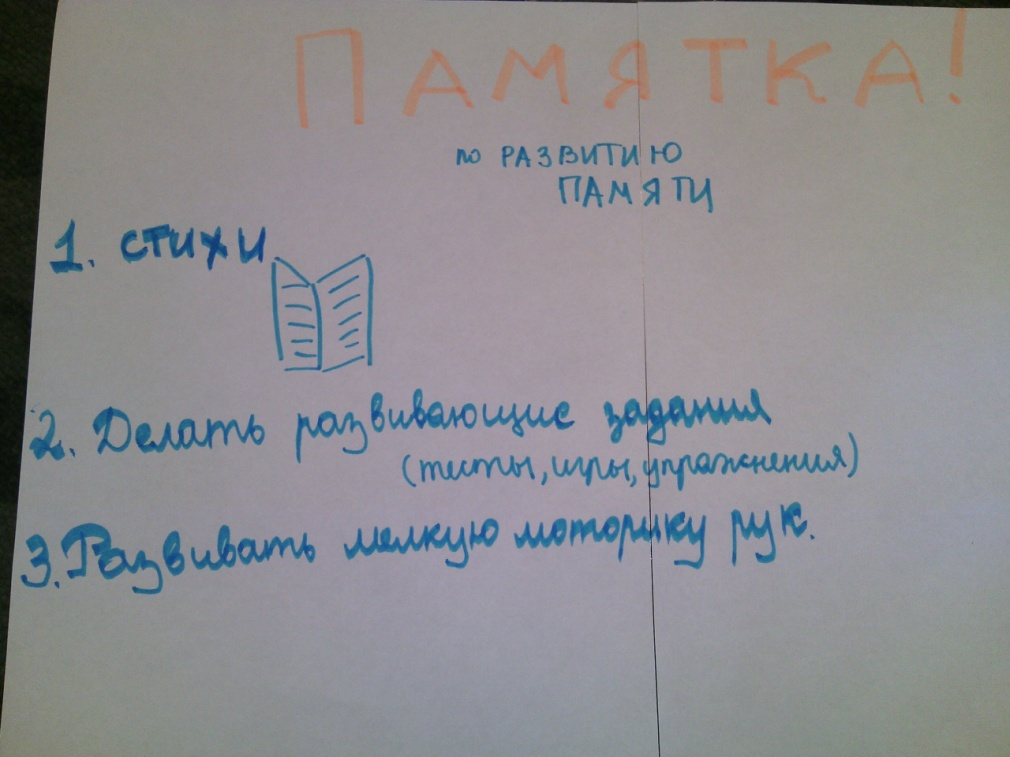 ПАМЯТКА!
по РАЗВИТИЮ
ПАМЯТИ
1. СТИХИ
2. Делать развивающие задания
(тесты, игры, упражнения)
3. Развивать мелкую моторику рук.